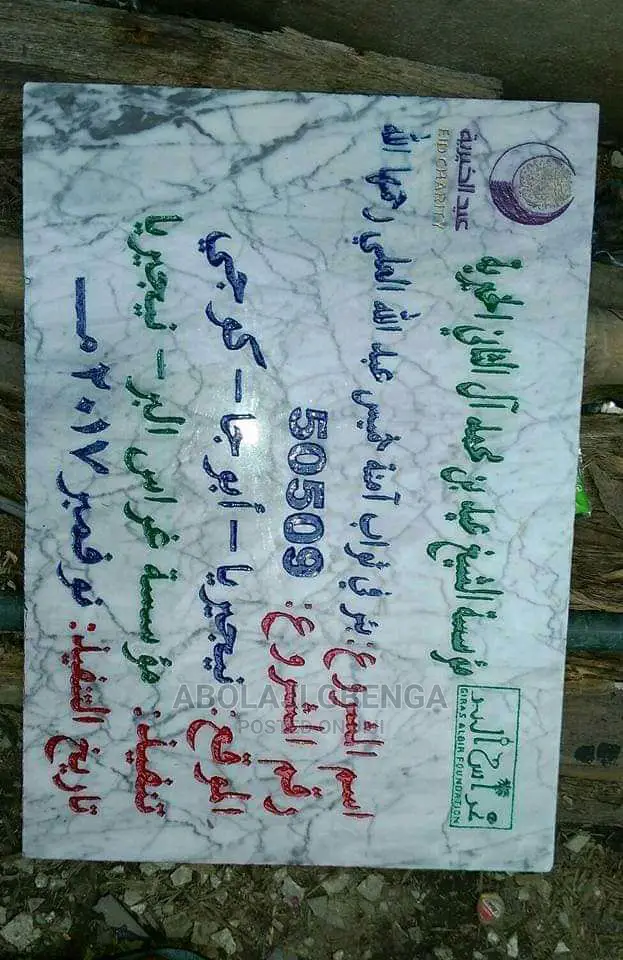 عيد الخيرية
EID CHARITY
غراس البر
GIRAS ALBIR FOUNDATION
مؤسسة الشيخ عيد بن محمد آل الثاني الخيرية
اسم المشروع: بئر في ثواب آمنة خميس عبد الله العلي رحمها الله
رقم المشروع: 50509
الموقع: نيجيريا - أبوجا - كوجي
تنفيذ: مؤسسة غراس البر - نيجيريا
تاريخ التنفيذ: نوفمبر ٢٠١٧ مـ
ABOLAJI GBENGA
POSTED ON JIJI